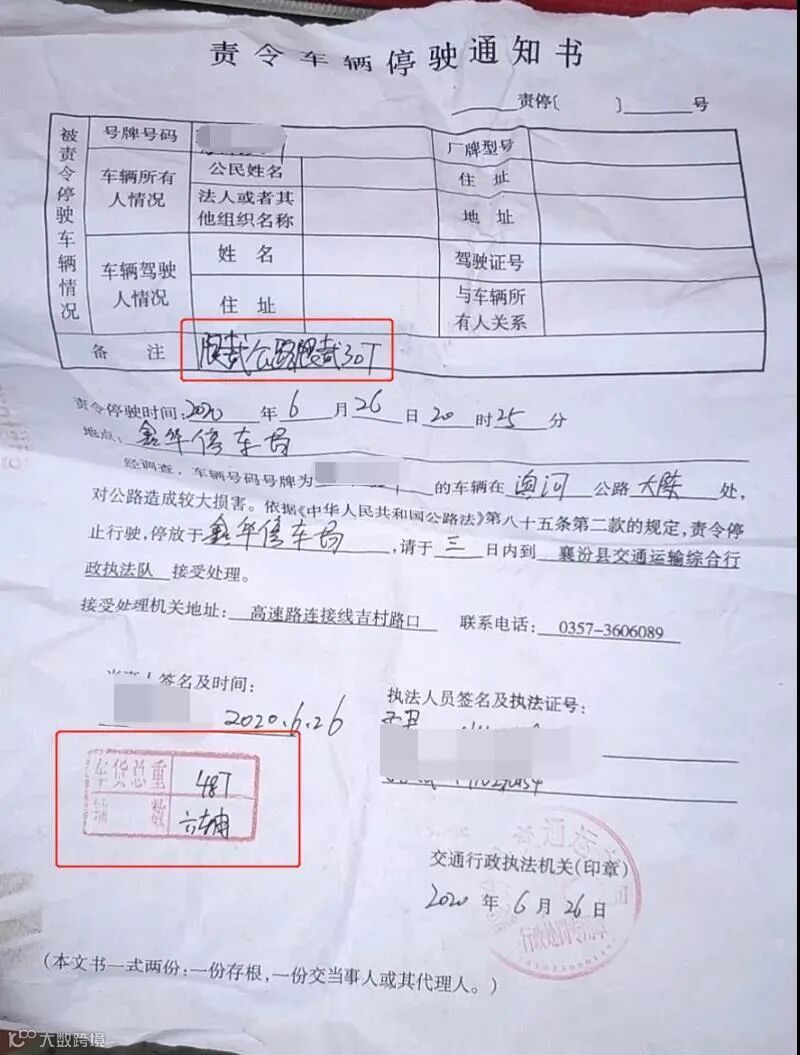 责令车辆停驶通知书
责停〔 〕 号
被责令停驶车辆情况
号牌号码 厂牌型号
车辆所有人情况 公民姓名 住址
法人或者其他组织名称 地址
车辆驾驶人情况 姓名 驾驶证号
住址 与车辆所有人关系
备注 限载公路限载30T
责令停驶时间:2020年6月26日20时25分
地点:鑫华停车场
经调查,车辆号码号牌为 的车辆在 公路大陈处,
对公路造成较大损害。依据《中华人民共和国公路法》第八十五条第二款的规定,责令停
止行驶,停放于鑫华停车场,请于三日内到襄汾县交通运输综合行
政执法队接受处理。
接受处理机关地址:高速路连接线吉村路口 联系电话:0357-3606089
签名及时间:
执法人员签名及执法证号:
2020.6.26
车货总重 48T
轴数 六轴
交通行政执法机关(印章)
2020年6月26日
(本文书一式两份:一份存根,一份交当事人或其代理人。)
大数跨境